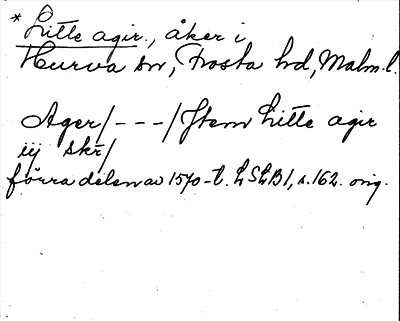 * Litte agir., åker i
Hurva sn, Frosta hd, Malm.l.
Ager/---/Item Litte agir
iij skr/
förra delen av 1570-t. LSLB1, s.162. orig.